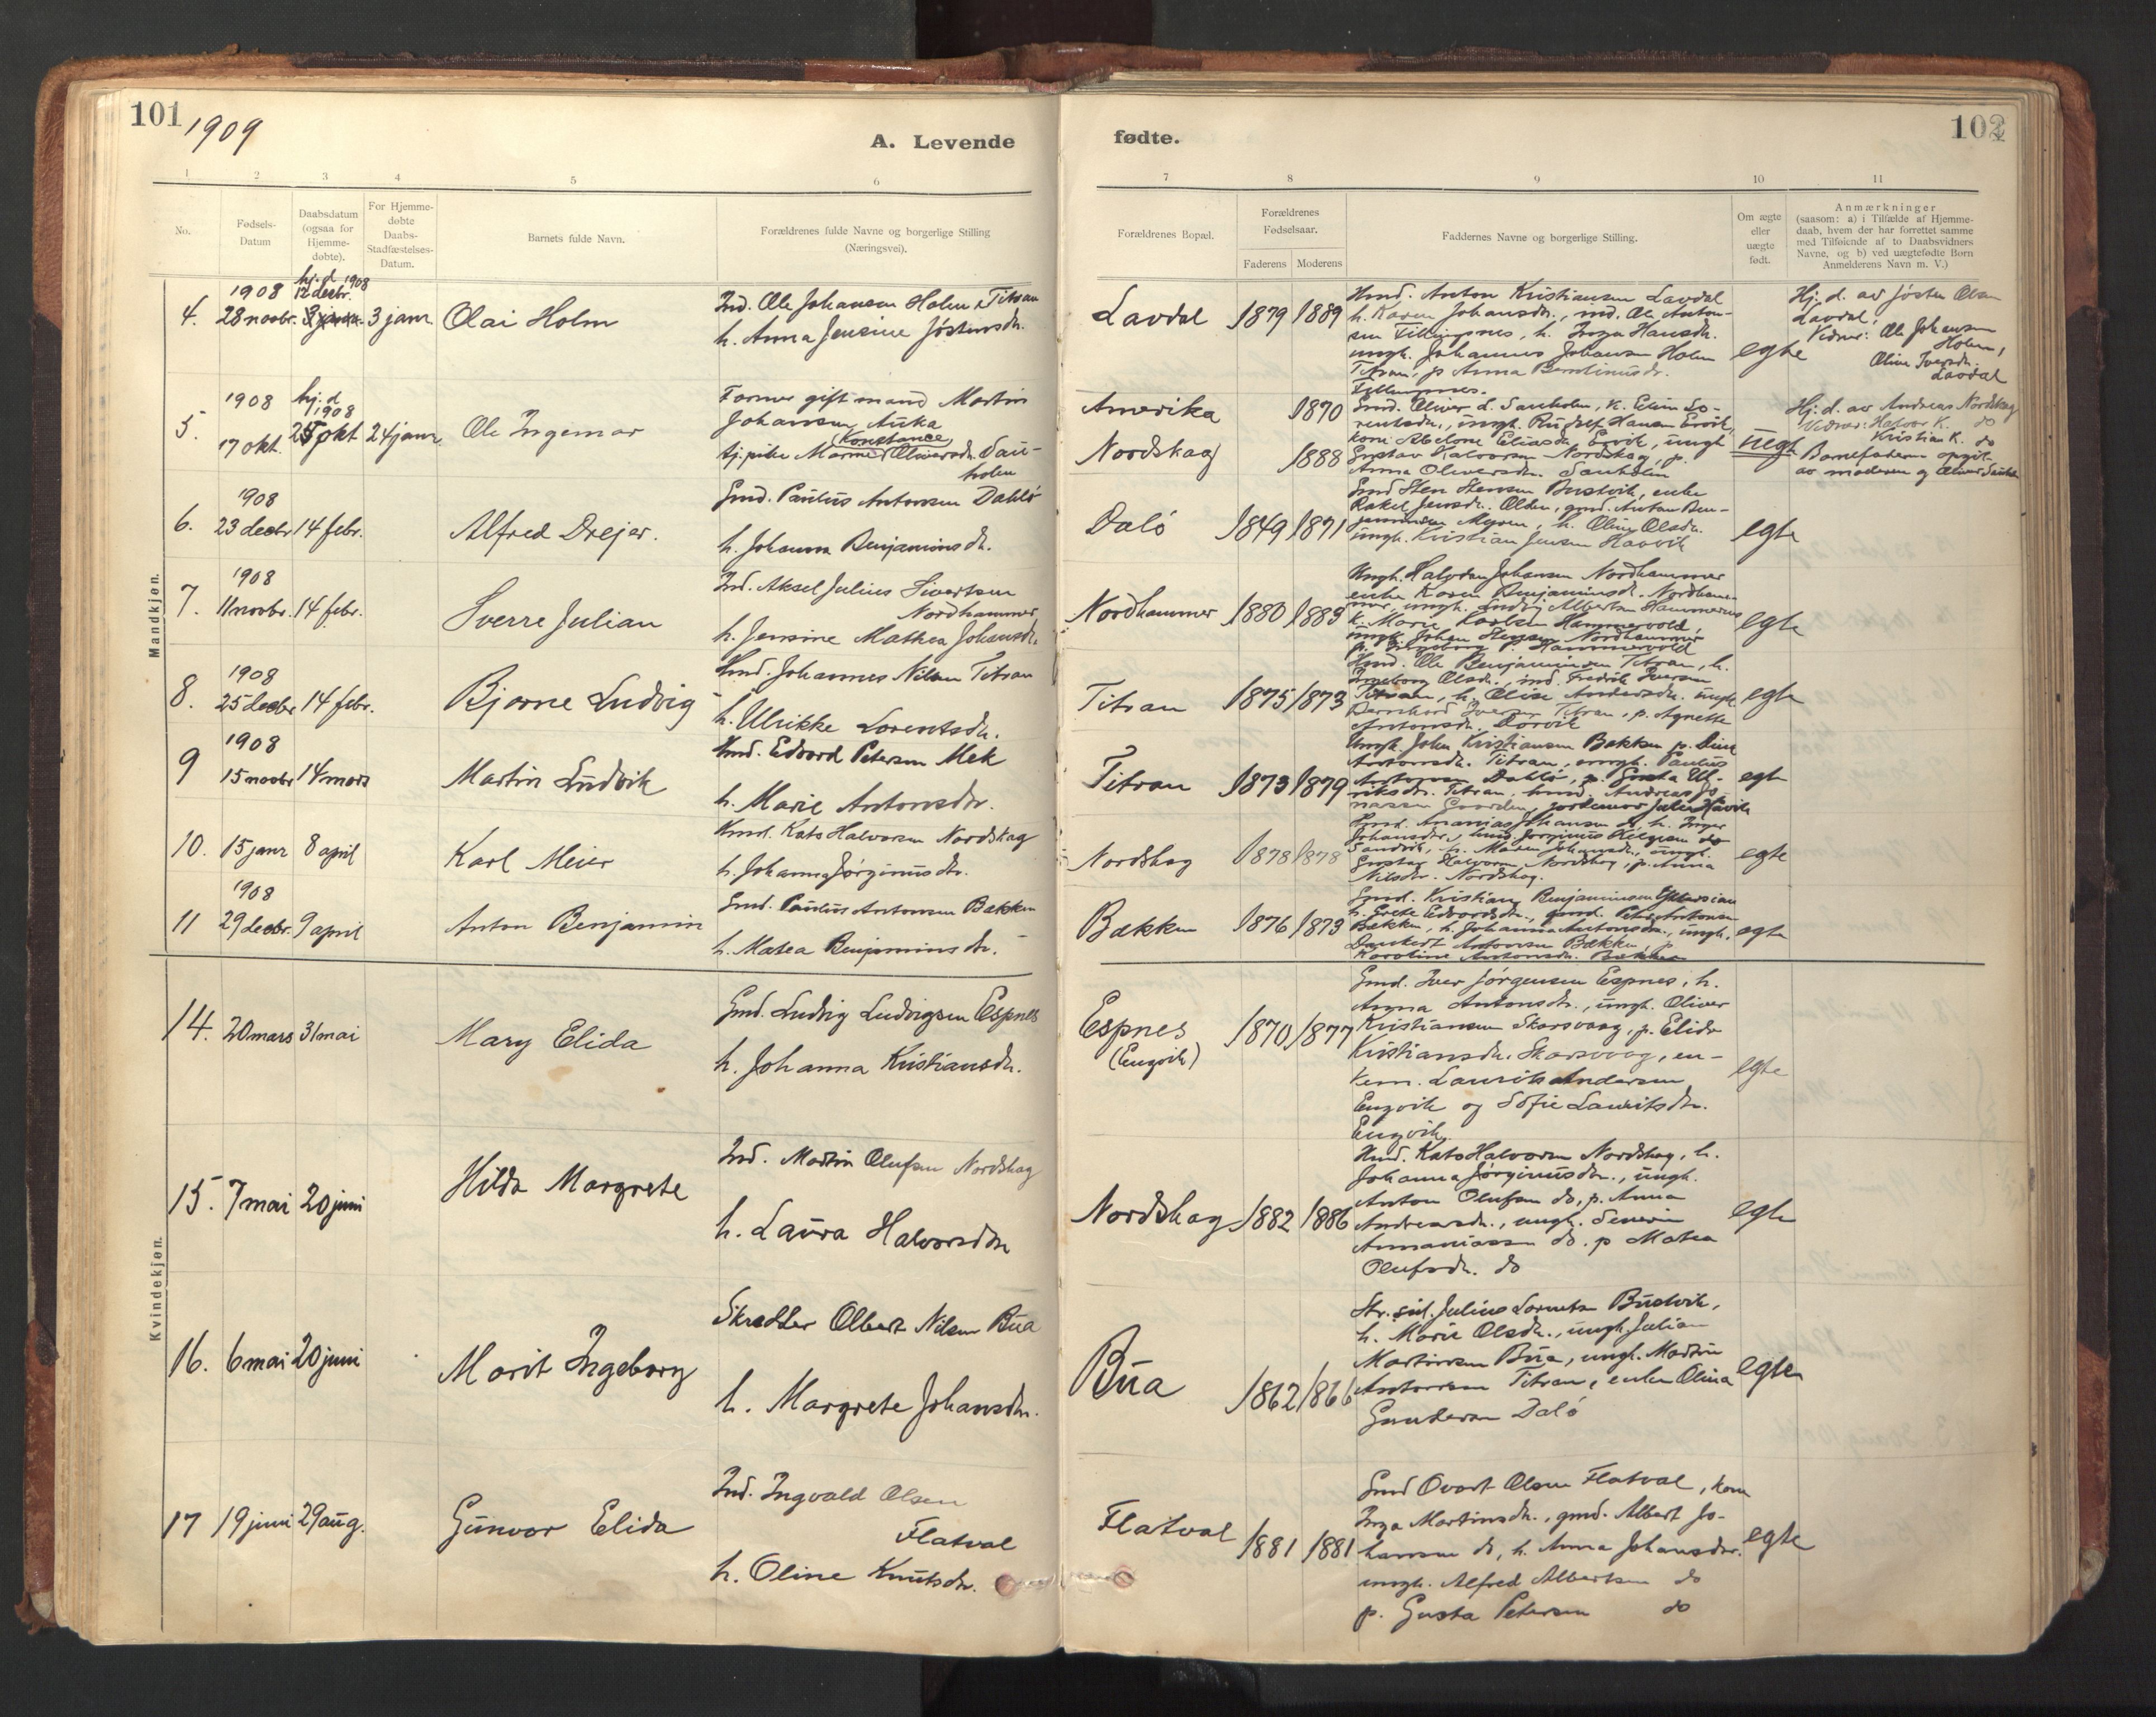 101
1909
A. Levende
fødte.
102
1 2 3 4 5 6 7 8 9 10 11
No.
Fødsels-
Datum
Daabsdatum
(ogsaa for
Hjemme-
døbte).
For Hjemme-
døbte
Daabs-
Stadfæstelses-
Datum.
Barnets fulde Navn.
Forældrenes fulde Navne og borgerlige Stilling
(Næringsvei).
Forældrenes Bopæl.
Forældrenes
Fødselsaar.
Faderens Moderens
Faddernes Navne og borgerlige Stilling.
Om ægte
eller
uægte
født.
Anmærkninger
(saasom: a) i Tilfælde af Hjemme-
daab, hvem der har forrettet samme
med Tilføiende af to Daabsvidners
Navne, og b) ved uægtefødte Børn
Anmelderens Navn m. V.)
Mandkjøn.
4.
1908
28 novbr.
hj. d. 1908
12 decbr.
3 janr.
Olai Holm
Ind. Ole Johansen Holm, Titran
h. Anna Jensine Jöstensdr.
Lavdal
1879 1889
Kmd. Anton Kristiansen Lavdal
h. Karen Johansdr., ind. Ole Anton-
sen Fillingsnes, h. Inga Hansdr.
ungk. Johannes Johansen Holm
Titran, p. Anna
Fillingsnes.
egte
Hj. d. av Jösten Olsen
Lavdal,
Vidner: Ole Johansen
Holm,
Oline Iversdr.
Lavdal
5.
1908
17 okt.
hj. d
1908
25 okt
24 janr.
Ole Ingemar
Former gift mand Martin
Johansen Auka
Konstance
tj. pike Oliversdr. Sau-
holm
Amerika 1870
Nordskag 1888
Gmd. Oliver d. Sauholm, k. Elen So-
rentsdr., ungk. Rudolf Hansen Ervik,
kone Abelone Eliasdr. Ervik, ungk
Gustav Halvorsen Nordskag, p.
Anna Oliversdr. Sauholm
uegte
Hj. d. av Andreas Nordskag
Vidner: Halvor K. do
Kristian K. do
Barnefaderen opgit
av moderen og Oliver Sauholm
6.
1908
23 decbr 14 febr.
Alfred Drejer.
Gmd. Paulus Antonsen Dahlö
h. Johanna Benjaminsdr.
Dalö
1849 1871
Gmd Sten Stensen Bustvik, enke
Rakel Jensdr. Olden, gmd. Anton Ben-
jaminsen, h. Oline Olsdr.
ungk. Kristian Jensen Havvik
egte
7.
1908
11 novbr. 14 febr.
Sverre Julian
Ind. Aksel Julius Sivertsen
Nordhammer
h. Jensine Mathea Johansdr.
Nordhammer
1880 1883
Ungk. Halvdan Johansen Nordhammer
enke Karen Benjaminsdr. Nordham-
mer, ungk. Ludvig Albertsen
k. Marie Karlsen Hammervold,
ungk. Johan Stensen Nordhammer
p. Ingeborg P. Hammervold
egte
8.
1908
25 decbr 14 febr.
Bjarne Ludvig
Kmd. Johannes Nilsen Titran
h. Ulrikke Lorentsdr.
Titran
1875 1873
Kmd. Ole Benjaminsen Titran, h.
Ingeborg Olsdr., ind. Fredrik Iversen
Titran, h. Elise Andersdr. ungk
Bernhard Iversen Titran, p. Agnethe
Antonsdr. Dorvik
egte
9
1908
15 novbr 14 mars
Martin Ludvik
Kmd. Edvard Petersen Mek
h. Marie Antonsdr.
Titran
1873 1879
Ungk. John Kristiansen Bækken p. Dina
Antonsdr. Titran, ungk. Paulus
Antonsen Dahlö, p. Gusta Ul-
riksdr. Titran, kmd. Andreas Jo-
nassen, jordemor Julie Havik
egte
10. 15 janr 8 april
Karl Meier
Kmd. Kato Halvorsen Nordskag
h. Johanna Jørginusdr.
Nordskag
1878 1878
Kmd. Ananias Johansen do, h. Inger
Johansdr., kmd. Jørginus
Sandvik, h. Maren Johansdr., ungk.
Gustav Halvorsen, Nordskag, p. Anna
Nilsdr. Nordskag.
egte
11
1908
29 decbr. 9 april
Anton Benjamin
Gmd. Paulus Antonsen Bækken
h. Matea Benjaminsdr.
Bækken
1876 1873
Gmd. Kristian Benjaminsen
h. Grete Edvardsdr., gmd. Peter Antonsen
Bækken, h. Johanna Antonsdr., ungk.
Dankert Antonsen Bækken, p.
Karoline Antonsdr. Bækken
egte
Kvindekjøn.
14. 20 mars 31 mai
Mary Elida
Gmd. Ludvig Ludvigsen Espnes
h. Johanna Kristiansdr.
Espnes
(Engvik)
1870 1877
Gmd. Iver Jörgensen Espnes, h.
Anna Antonsdr., ungk. Oliver
Kristiansen Skarsvaag, p. Elida
Kristiansdr. Skarsvaag, en-
kem. Laurits Andersen
Engvik og Sofie Lauritsdr.
Engvik.
egte
15. 7 mai 20 juni
Hilda Margrete
Ind. Martin Olufsen Nordskag
h. Laura Halvorsdtr
Nordskag
1882 1886
Kmd. Kato Halvorsen Nordskag, h.
Johanna Jørginusdtr., ungk.
Anton Olufsen do, p. Anna
Andreasdr., ungk. Severin
Annaniassen do. p Matea
Olufsdr. do
egte
16. 6 mai 20 juni
Marit Ingeborg
Skrædder Olbert Nilsen Bua
h. Margrete Johansdtr.
Bua
1862 1866
Str. sid. Julius Lorentsen Bustvik,
h. Marie Olsdr., ungk Julian
Martinsen Bua, ungk. Martin
Antonsen Titran, enke Olina
Gundersen Dalö
egte
17 19 juni 29 aug.
Gunvor Elida
Ind. Ingvald Olsen
Flatval
h. Oline Knutsdr.
Flatval
1881 1881
Gmd Ovart Olsen Flatval, kone
Inga Martinsdr., gmd. Albert Jo-
hansen do, h. Anna Johansdtr.
ungk. Alfred Albertsen do
p. Gusta Petersen do
egte